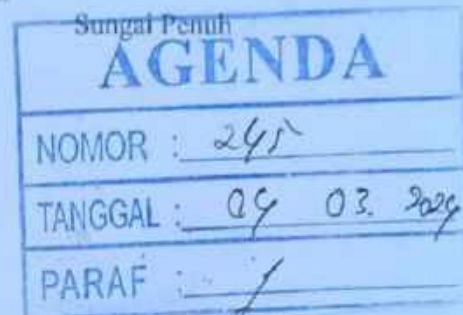 Sungai Penuh
AGENDA
NOMOR : 245
TANGGAL : 04 03. 2024
PARAF :